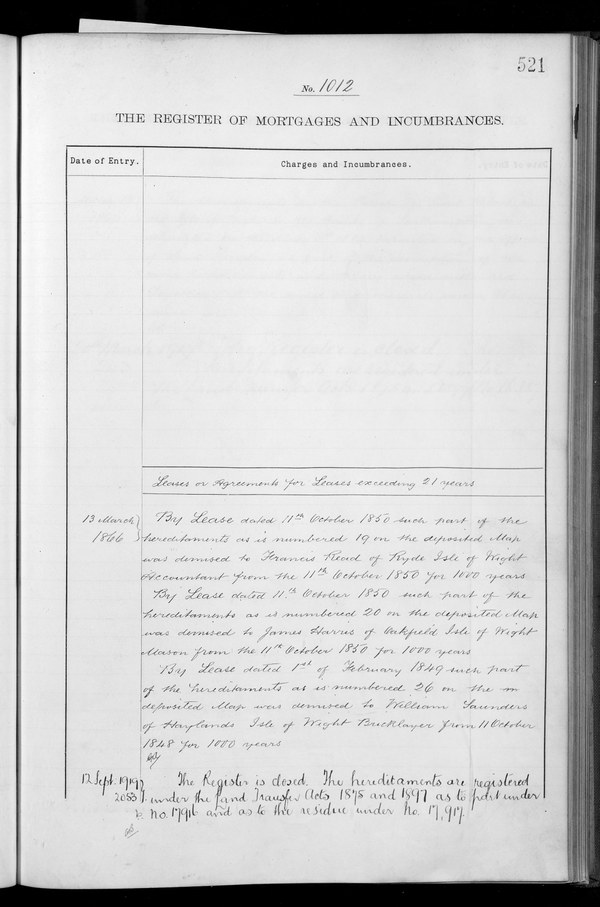 521
No. 1012
THE REGISTER OF MORTGAGES AND INCUMBRANCES.
Date of Entry.
Charges and Incumbrances.
Leases or Agreements for Leases exceeding 21 years
13 March
1866
By Lease dated 11th October 1850 such part of the
hereditaments as is numbered 19 on the deposited Map
was demised to Francis Read of Ryde Isle of Wight
Accountant from the 11th October 1850 for 1000 years.
By Lease dated 11th October 1850 such part of the
hereditaments as is numbered 20 on the deposited Map
was demised to James Harris of Oakfield Isle of Wight
Mason from the 11th October 1850 for 1000 years
By Lease dated 1st of February 1849 such part
of the hereditaments as is numbered 26 on the
deposited Map was demised to William Saunders
of Haylands Isle of Wight Bricklayer from 11 October
1848 for 1000 years
12 Sept. 1919
2053
The Register is closed. The hereditaments are registered
under the Land Transfer Acts 1875 and 1897 as to part under
No. 17916 and as to the residue under No. 17,917.